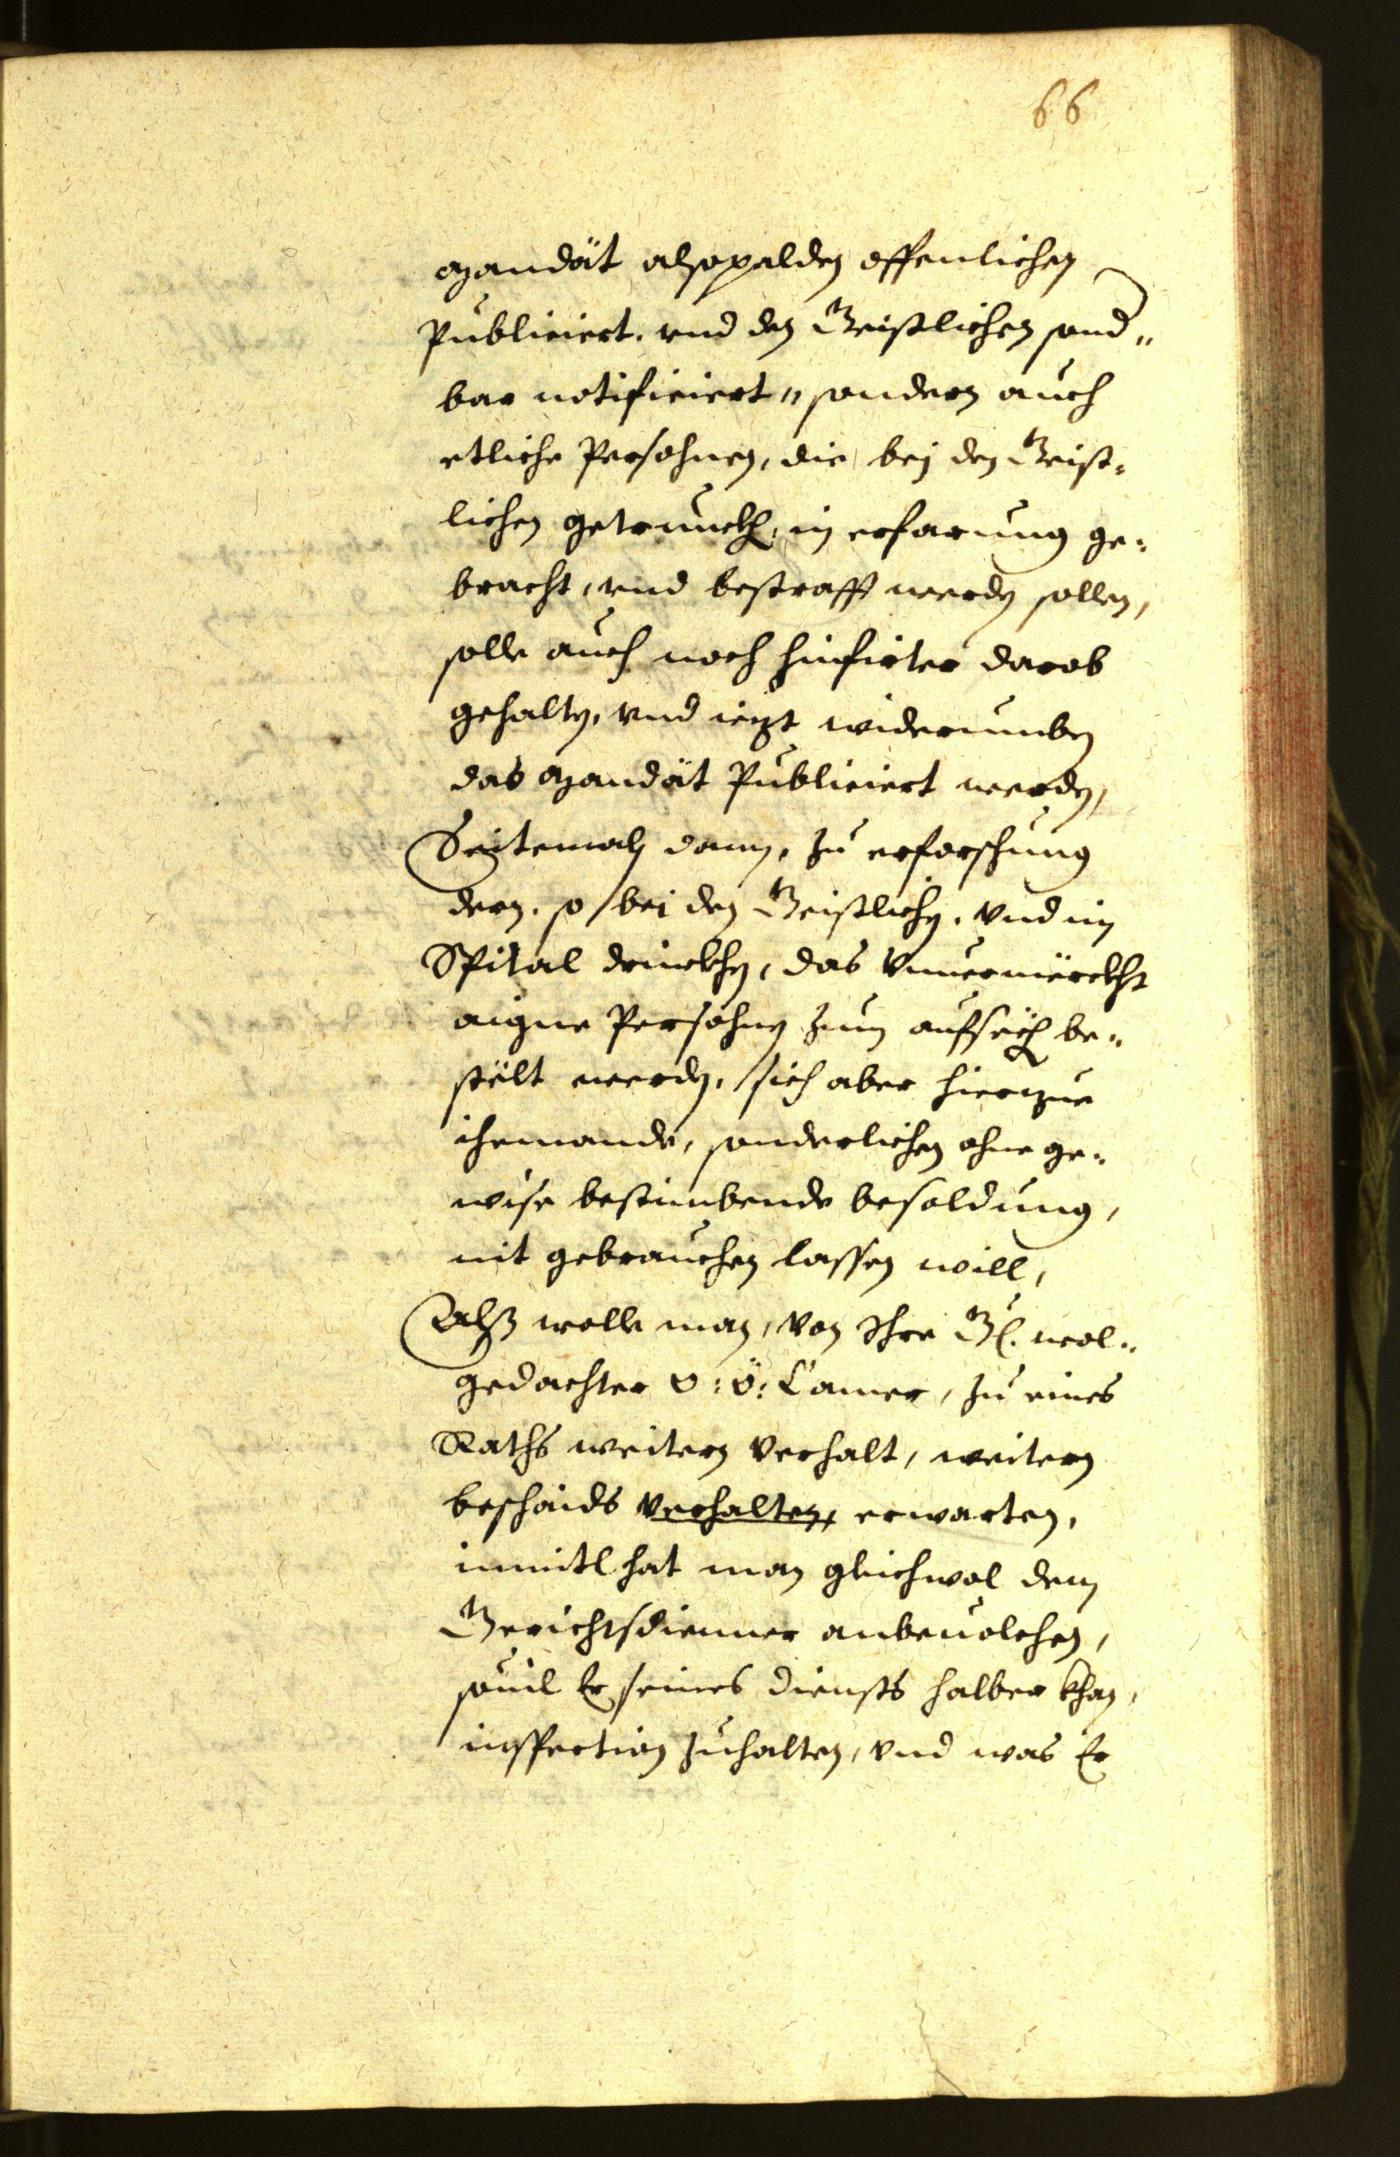 66
mandät alspalden offenlichen
Publiciert. vnd den Geistlichen sond„
bar notificiert„ sondern auch
etliche Persohnen, die bej den Geist„
lichen getrunckh, in erfarung ge„
bracht, vnd bestrafft werdn sollen,
solle auch noch hinfirter darob
gehaltn, vnd iezt widerumben
das mandät Publiciert werdn,
Seitemaln dann, zu erforschung
dern, so bei den Geistlichn, vnd im
Spital drinckhn, das vnuermörckht
aigne Persohnn zum aufsech be„
stölt werdn, sich aber hierzue
ihemandr, sonderlichen ohne ge„
wise bestimbende besoldung,
nit gebrauchen lassen will,
Alß wolle man, von Ihr Gl. wol„
gedachter O: Ö: Camer, zu eines
Raths weitern verhalt, weitern
beschaids verhalten, erwarten,
inmitl hat man gleichwol dem
Gerichtsdienner anbeuolchen,
souil Er seines diensts halber khan,
inspection zuhalten, vnd was Er